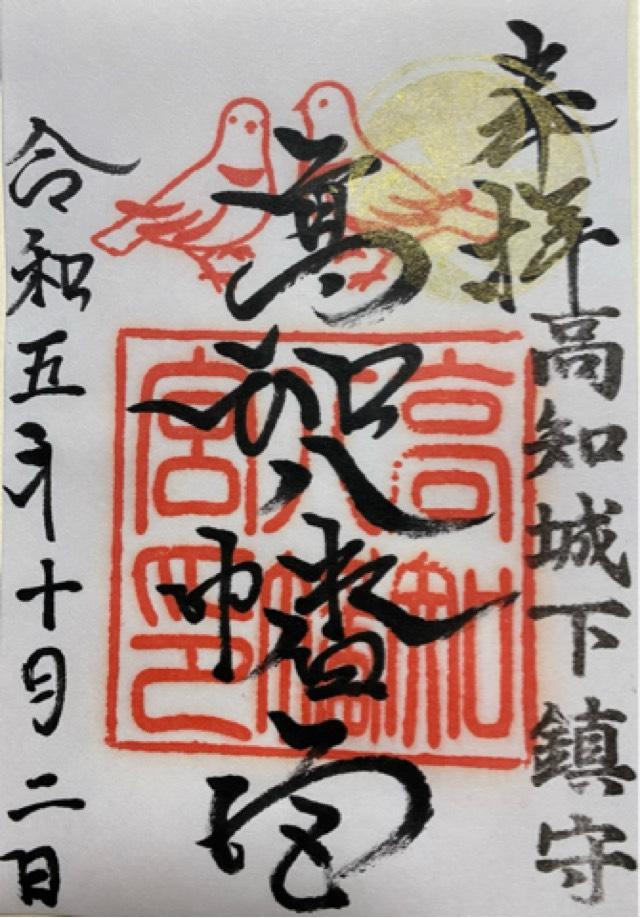 奉拝
高知城下鎮守
高知八幡宮
高知八幡宮印
令和五年十月二日